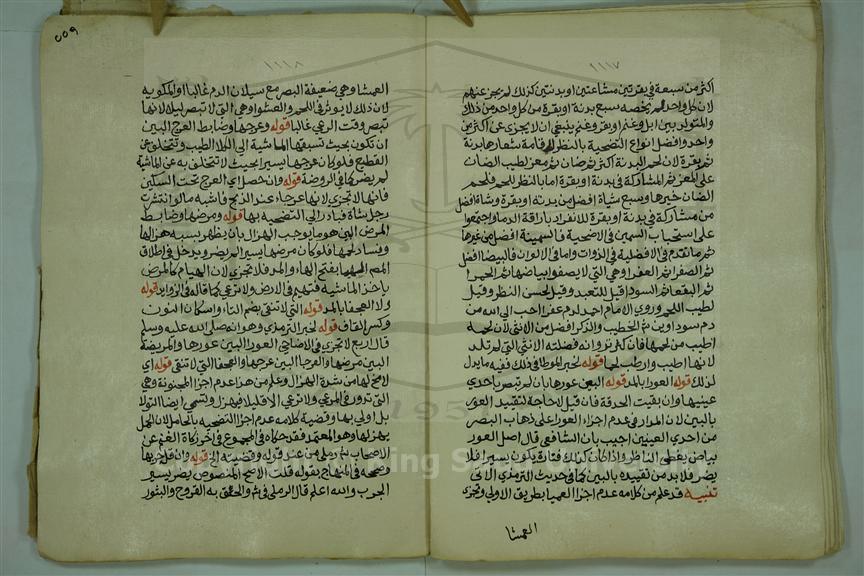 ١١١٧
أكثر من سبعة في بقرتين مشاعتين أو بدنتين كذلك لم يجز عنهم
لان كل واحد لم يخصه سبع بدنة او بقرة من كل واحد من ذلك
والمتولد بين ابل وغنم او بقر وغنم ينبغي ان لا يجزى عن اكثر من
واحد وافضل انواع التضحية بالنظر لاقامة شعارها بدنة
ثم بقرة لان لحم البدنة اكثر ثم ضان ثم معز لطيب الضان
على المعز ثم المشاركة في بدنة او بقرة اما بالنظر للحم فلحم
الضان خيرها وسبع شياه افضل من بدنة او بقرة وشاة افضل
من مشاركة في بدنة او بقرة للانفراد باراقة الدم واجمعوا
على استحباب السمين في الاضحية فالسمينة افضل من غيرها
ثم ما تقدم في الافضلية في الذوات واما في الالوان فالبيضا افضل
ثم الصفرا ثم العفرا وهي التي لا يصفو بياضها ثم الحمرا
ثم البلقا ثم السودا قيل للتعبد وقيل لحسن النظر وقيل
لطيب اللحم وروى الامام احمد لدم عفرا احب الى الله من
دم سوداوين ثم الخطيب والذكر افضل من الانثى لان لحمه
اطيب من لحمها فان كثر نزوانه فضلته الانثى التي لم تلد
لانها اطيب وارطب لحما قوله لخبر الموطا في ذلك نفيه ما يدل
لذلك قوله العورا بالمد قوله البين عورها بان لم تبصر باحدى
عينيها وان بقيت الحدقة فان قيل لا حاجة لتقييد العور
بالبين لان المدار في عدم اجزا العورا على ذهاب البصر
من احدى العينين اجيب بان الشافعي قال اصل العور
بياض يغطي الناظر واذا كان كذلك فتارة يكون يسيرا فلا
يضر فلا بد من تقييده بالبين كما في حديث الترمذي الاتي
تنبيه قد علم من كلامه عدم اجزا العميا بطريق الاولى وتجزى
العمشا
١١١٨
٥٥٩
العمشا وهي ضعيفة البصر مع سيلان الدمع غالبا او المكوية
لان ذلك لا يوثر في اللحم والعشوا وهي التي لا تبصر ليلا لانها
تبصر وقت الرعي غالبا قوله وعرجها وضابط العرج البين
ان تكون بحيث تسبقها الماشية الى الكلا الطيب وتتخلف عن
القطيع فلو كان عرجها يسيرا بحيث لا تتخلف به عن الماشية
لم يضر كما في الروضة قوله وان حصل اي العرج تحت السكين
فانها لا تجزى لانها عرجاء عند الذبح فاشبه ما لو انكسرت
رجل شاة فبادر الى التضحية بها قوله ومرضها وضابط
المرض البين هو ما يوجب الهزال بان يظهر بسببه هزالها
وفساد لحمها فلو كان مرضها يسيرا لم يضر ويدخل في اطلاق
المص الهيما بفتح الها والمد فلا تجزى لان الهيام كالمرض
ياخذ الماشية فتهيم في الارض ولا ترعى كما قاله في الزوايد قوله
ولا العجفا بالمد قوله التي لا تنقى بضم التاء واسكان النون
وكسر القاف قوله لخبر الترمذي وهو انه صلى الله عليه وسلم
قال اربع لا تجزى في الاضاحي العورا البين عورها والمريضة
البين مرضها والعرجا البين عرجها والعجفا التي لا تنقى قوله اي
لا مخ لها من شدة الهزال وعلم من هذا عدم اجزا المجنونة وهي
التي تدور في المرعى ولا ترعى الا قليلا فتهزل وتسمى ايضا التولا
بل اولى بها وقضية كلامه عدم اجزا التضحية بالحامل لان الحمل
يهزلها وهو المعتمد فقد حكاه في المجموع في اخر زكاة الغنم عن
الاصحاب ثم رملي من عند قوله وقضية الخ قوله وان قلا جربها
وصححه في المنهاج بقوله قلت الاصح المنصوص يضر يسير
الجرب والله اعلم قال الرملي في ثم والحق به القروح والبثور